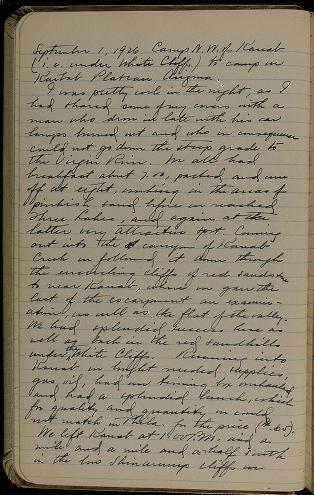 September 1, 1926. Camp N.W. of Kanab
(i.e. under White Cliffs) to camp on
Kaibab Plateau, Arizona.
I was pretty cool in the night, as I
had shared some of my covers with a
man who drove in late with his car
lamps burned out and who in consequence
could not go down the steep grade to
the Virgin River. We all had
breakfast about 7.00, packed and were
off at eight, working in the areas of
pinkish sand before we reached
Three Lakes, and again at the
latter very attractive spot. Coming
out into the canyon of Kanab
Creek we followed it down through
the encircling cliffs of red sandstone
to near Kanab, where we gave the
last of the escarpment an examin-
ation, as well as the flat of the valley.
We had splendid success here as
well as back in the red sandhills
under the White Cliffs. Running into
Kanab we bought needed supplies,
gas, oil, had our timing box overhauled
and had a splendid lunch, which
for quality and quantity we could
not match in Phila. for the price
We left Kanab at 1.00 P.M. and a
mile and a mile and a half south
in the low Shinarump cliffs we